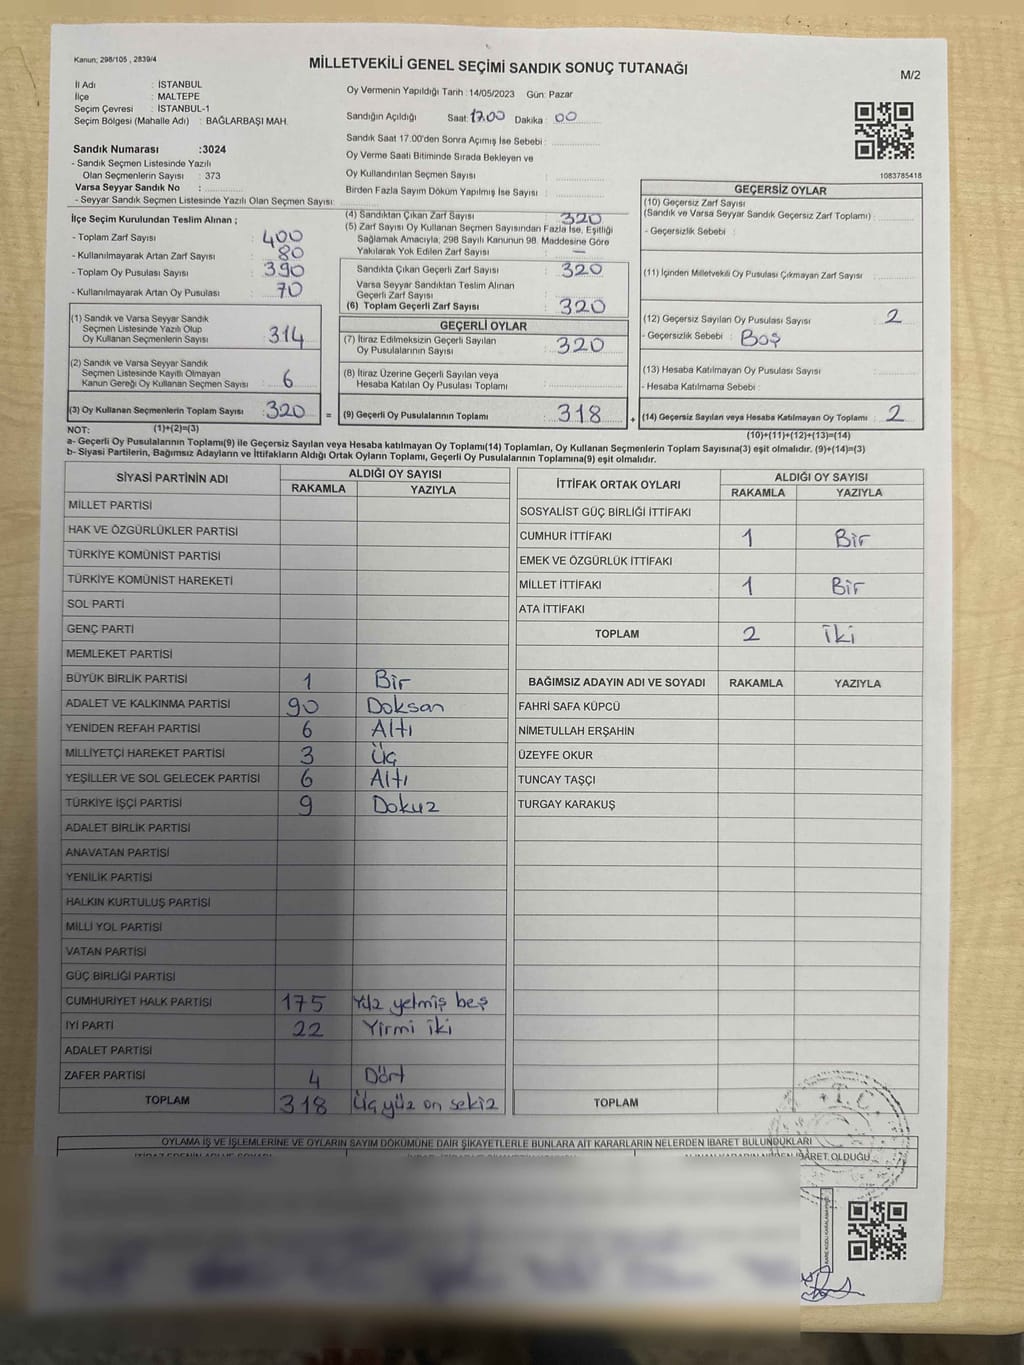 Kanun; 298/105 , 2839/4
MİLLETVEKİLİ GENEL SEÇİMİ SANDIK SONUÇ TUTANAĞI
M/2
İl Adı : İSTANBUL
İlçe : MALTEPE
Seçim Çevresi : İSTANBUL-1
Seçim Bölgesi (Mahalle Adı) : BAĞLARBAŞI MAH.
Sandık Numarası :3024
- Sandık Seçmen Listesinde Yazılı
Olan Seçmenlerin Sayısı : 373
Varsa Seyyar Sandık No :
- Seyyar Sandık Seçmen Listesinde Yazılı Olan Seçmen Sayısı:
Oy Vermenin Yapıldığı Tarih :14/05/2023 Gün: Pazar
Sandığın Açıldığı Saat: 17.00 Dakika : 00
Sandık Saat 17:00'den Sonra Açımış İse Sebebi :
Oy Verme Saati Bitiminde Sırada Bekleyen ve
Oy Kullandırılan Seçmen Sayısı :
Birden Fazla Sayım Döküm Yapılmış İse Sayısı :
1083785418
İlçe Seçim Kurulundan Teslim Alınan ;
- Toplam Zarf Sayısı : 400
- Kullanılmayarak Artan Zarf Sayısı : 80
- Toplam Oy Pusulası Sayısı : 390
- Kullanılmayarak Artan Oy Pusulası : 70
(1) Sandık ve Varsa Seyyar Sandık
Seçmen Listesinde Yazılı Olup
Oy Kullanan Seçmenlerin Sayısı : 314
(2) Sandık ve Varsa Seyyar Sandık
Seçmen Listesinde Kayıtlı Olmayan
Kanun Gereği Oy Kullanan Seçmen Sayısı : 6
(3) Oy Kullanan Seçmenlerin Toplam Sayısı : 320 =
(4) Sandıktan Çıkan Zarf Sayısı : 320
(5) Zarf Sayısı Oy Kullanan Seçmen Sayısından Fazla İse, Eşitliği
Sağlamak Amacıyla, 298 Sayılı Kanunun 98. Maddesine Göre
Yakılarak Yok Edilen Zarf Sayısı : —
Sandıkta Çıkan Geçerli Zarf Sayısı : 320
Varsa Seyyar Sandıktan Teslim Alınan
Geçerli Zarf Sayısı :
(6) Toplam Geçerli Zarf Sayısı : 320
GEÇERLİ OYLAR
(7) İtiraz Edilmeksizin Geçerli Sayılan
Oy Pusulalarının Sayısı : 320
(8) İtiraz Üzerine Geçerli Sayılan veya
Hesaba Katılan Oy Pusulası Toplamı :
(9) Geçerli Oy Pusulalarının Toplamı : 318 +
GEÇERSİZ OYLAR
(10) Geçersiz Zarf Sayısı
(Sandık ve Varsa Seyyar Sandık Geçersiz Zarf Toplamı) :
- Geçersizlik Sebebi :
(11) İçinden Milletvekili Oy Pusulası Çıkmayan Zarf Sayısı :
(12) Geçersiz Sayılan Oy Pusulası Sayısı : 2
- Geçersizlik Sebebi : Boş
(13) Hesaba Katılmayan Oy Pusulası Sayısı :
- Hesaba Katılmama Sebebi :
(14) Geçersiz Sayılan veya Hesaba Katılmayan Oy Toplamı : 2
NOT: (1)+(2)=(3) (10)+(11)+(12)+(13)=(14)
a- Geçerli Oy Pusulalarının Toplamı(9) ile Geçersiz Sayılan veya Hesaba katılmayan Oy Toplamı(14) Toplamları, Oy Kullanan Seçmenlerin Toplam Sayısına(3) eşit olmalıdır. (9)+(14)=(3)
b- Siyasi Partilerin, Bağımsız Adayların ve İttifakların Aldığı Ortak Oyların Toplamı, Geçerli Oy Pusulalarının Toplamına(9) eşit olmalıdır.
SİYASİ PARTİNİN ADI ALDIĞI OY SAYISI
RAKAMLA YAZIYLA
MİLLET PARTİSİ
HAK VE ÖZGÜRLÜKLER PARTİSİ
TÜRKİYE KOMÜNİST PARTİSİ
TÜRKİYE KOMÜNİST HAREKETİ
SOL PARTİ
GENÇ PARTİ
MEMLEKET PARTİSİ
BÜYÜK BİRLİK PARTİSİ 1 Bir
ADALET VE KALKINMA PARTİSİ 90 Doksan
YENİDEN REFAH PARTİSİ 6 Altı
MİLLİYETÇİ HAREKET PARTİSİ 3 Üç
YEŞİLLER VE SOL GELECEK PARTİSİ 6 Altı
TÜRKİYE İŞÇİ PARTİSİ 9 Dokuz
ADALET BİRLİK PARTİSİ
ANAVATAN PARTİSİ
YENİLİK PARTİSİ
HALKIN KURTULUŞ PARTİSİ
MİLLİ YOL PARTİSİ
VATAN PARTİSİ
GÜÇ BİRLİĞİ PARTİSİ
CUMHURİYET HALK PARTİSİ 175 Yüz yetmiş beş
İYİ PARTİ 22 Yirmi iki
ADALET PARTİSİ
ZAFER PARTİSİ 4 Dört
TOPLAM 318 Üçyüz on sekiz
İTTİFAK ORTAK OYLARI ALDIĞI OY SAYISI
RAKAMLA YAZIYLA
SOSYALİST GÜÇ BİRLİĞİ İTTİFAKI
CUMHUR İTTİFAKI 1 Bir
EMEK VE ÖZGÜRLÜK İTTİFAKI
MİLLET İTTİFAKI 1 Bir
ATA İTTİFAKI
TOPLAM 2 İki
BAĞIMSIZ ADAYIN ADI VE SOYADI RAKAMLA YAZIYLA
FAHRİ SAFA KÜPCÜ
NİMETULLAH ERŞAHİN
ÜZEYFE OKUR
TUNCAY TAŞÇI
TURGAY KARAKUŞ
TOPLAM
T.C.
OYLAMA İŞ VE İŞLEMLERİNE VE OYLARIN SAYIM DÖKÜMÜNE DAİR ŞİKAYETLERLE BUNLARA AİT KARARLARIN NELERDEN İBARET BULUNDUKLARI
İBARET OLDUĞU